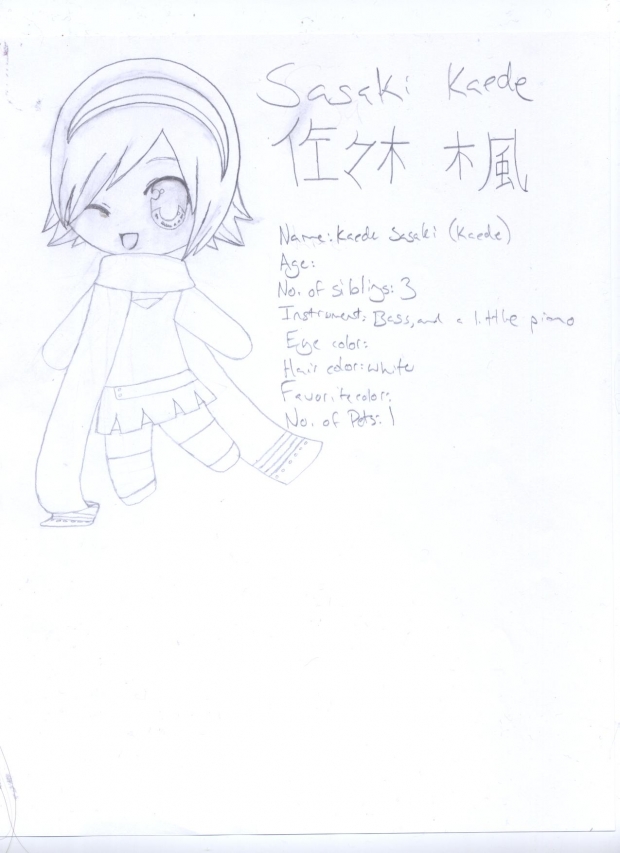 Sasaki Kaede
佐々木 楓
Name: Kaede Sasaki (Kaede)
Age:
No. of siblings: 3
Instrument: Bass, and a little piano
Eye color:
Hair color: white
Favorite color:
No. of Pets: 1